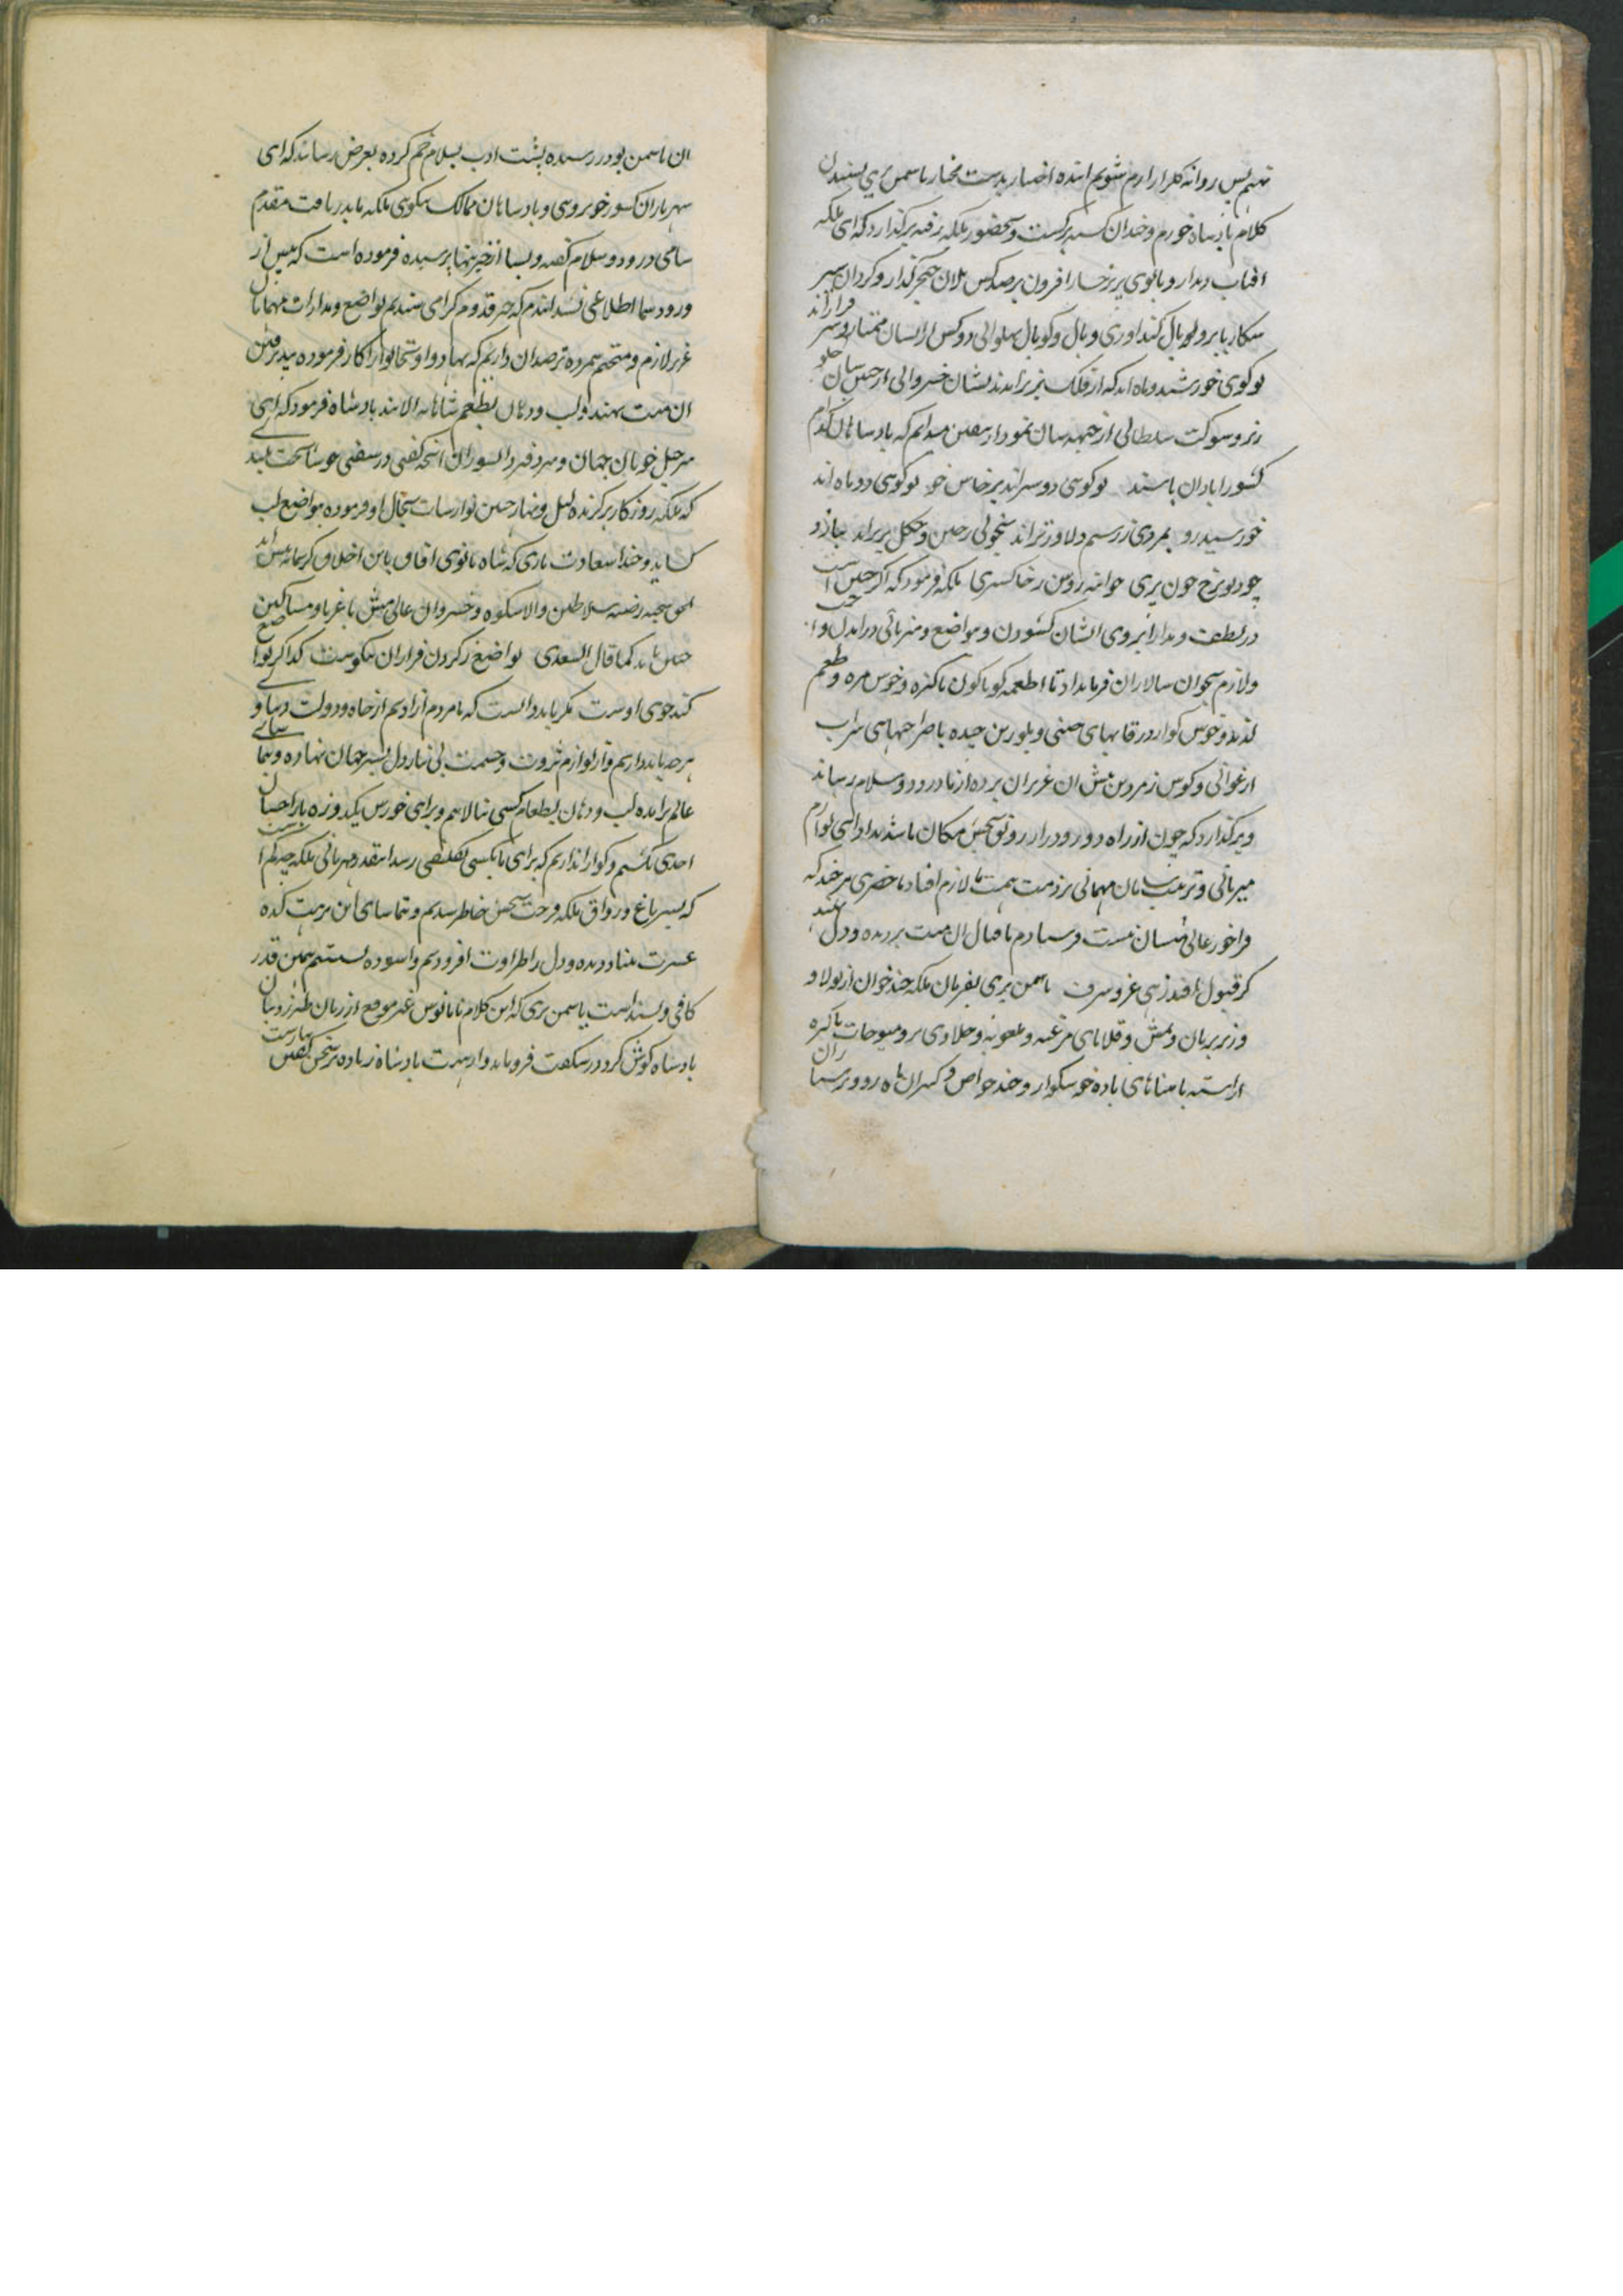 نهیم پس روانه گلزار ارم شویم اینده اختیار بدست مختار یاسمن پری بشنیدن
کلام بادشاه خورم و خندان برگشت و بحضور ملکه رفته برگذارد که ای ملکه
افتاب دیدار و بانوی پریرخسار افزون بر صد کس یلان خنجر گذار و گردان
شکار با برو یال کنداوری و بال و کوپال پهلوانی دو کس از ایشان ممتاز و سر فرازاند
تو گوی خورشید و ماه اند که از فلک بزیر اندند نشان خسروانی از جبین شان جلو
ریز و شوکت سلطانی از جبهه شان نمودار یقین میدانم که بادشاهان کدام
کشور ابادان باشند تو گوسی دو سراند پرخاش خو تو گوسی دو ماه اند
خورشید رو بمردی ز رستم دلاورتراند بخوبی ز چین و چگل برتراند ببازو
چو دیو برخ چون پری ملکه فرمود که اگر چنین است
در لطف و مدارا بروی ایشان کشودن و تواضع و میزبانی در اندل
و لازم بخوان سالاران فرمانداد تا اطعمه گوناگون پاکیزه و خوش مزه و طعم
لذیذ و خوش گوار در قابهای چینی و بلورین چیده با صراحیهای شراب
ارغوانی و کوس زمردین پیش ان عزیزان برده از ما درود و سلام رساند
و برگذارد که چون از راه دور و دراز رونق بخش مکان ما شدند ادای لوازم
میزبانی و ترتیب سامان مهمانی بر ذمت همت ما لازم افتاد ما حضری هر چند که
فراخور عالی منشان نیست فرستادم تا قبال ان منت بر دیده و دل نهند
گر قبول افتد زهی عز و شرف یاسمن پری بفرمان ملکه چند خوان از پولاو
و زیر بریان و قلیهای مرغینه و حلاوی تر و میوجات پاکیزه
اراسته با میناهای باده خوشگوار و چند خواص و کنیزان ماه رو و پرستاران
ان یاسمن بو در رسیده پشت ادب بسلام خم کرده بعرض رساند که ای
شهریاران کشور خوبروسی و بادشاهان ممالک نیکوسی ملکه ما بدریافت مقدم
سامی درود و سلام گفته و بسا از خیریتها پرسیده فرموده است که پیش از
ورود شما اطلاعی نشد اندم که خبر قدوم گرامی شنیدیم تواضع و مدارات مهمانان
عزیز لازم و متحتم شمرده ترصد ان داریم که فرموده بپذیرفتن
ان منت نهند و لب و دهان بطعم شاهانه الایند بادشاه فرمود که ای
سر خیل خوبان جهان و سر دفتر دانشوران انچه گفتی در سفتی خوشا بخت بلند
که ملکه روزگار برگزیده لیل و نهار چنین نوازشات بحال او فرموده بتواضع لب
کشاید و خدا سعادت یاری که شاه بانوی افاق باین اخلاق کریمانه پیش اید
الحق شیوه رضیه سلاطین والاشکوه و خسروان عالی منش با غربا و مساکین
چنین باید کما قال السعدی تواضع ز گردن فرازان نکوست گدا گر تواضع
کند خوی اوست مگر باید دانست که ما مردم ازادیم از جاه و دولت دنیا و
هر چه باید داریم و از لوازم ثروت و حشمت بی نیاز دل بسیر جهان نهاده و بتماشای
عالم برامده لب و دهان بطعام کسی نیالایم و برای خورش یکدوزه بار احسان
احدی نکشیم و گوارا نداریم که برای ما بکسی تکلیفی رسد اینقدر مهربانی ملکه چه کم است
که بسیر باغ و رواق ملکه فرحت بخش خاطر شدیم و تماشای این نزهت کده
عشرت بنیاد دیده و دل را طراوت افزودیم و اسوده نشستیم همین قدر
کافی و بسند است یاسمن پری که این کلام نا مانوس غیر موقع از زبان طبرزد بیان
بادشاه گوش کرد در شگفت فرو ماند و از هیبت بادشاه زیاده بر سخن گفتن نیارست